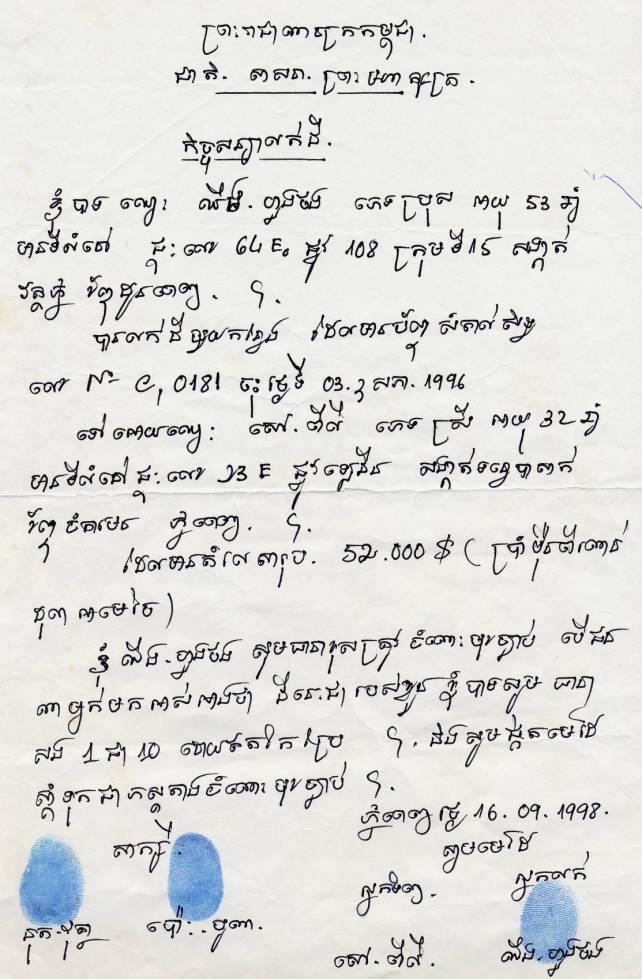 ព្រះរាជាណាចក្រកម្ពុជា.
ជាតិ. សាសនា. ព្រះមហាក្សត្រ.
កិច្ចសន្យាលក់ដី.
ខ្ញុំបាទ ឈ្មោះ ហួងថង ភេទប្រុស អាយុ 53 ឆ្នាំ
មានទីលំនៅ ផ្ទះលេខ 64 E ផ្លូវ 108 ក្រុមទី 15 សង្កាត់
វត្តភ្នំ ខ័ណ្ឌដូនពេញ. ។.
បានលក់ដីមួយកន្លែង ដែលមានប័ណ្ណសំគាល់សិទ្ធ
លេខ 0181 ចុះថ្ងៃទី 03. ឧសភា. 1996
ទៅអោយឈ្មោះ សៅ. ភេទ ស្រី អាយុ 32 ឆ្នាំ
មានទីលំនៅផ្ទះលេខ 23 E ផ្លូវឡេនីន សង្កាត់ទន្លេបាសាក់
ខ័ណ្ឌចំការមន ភ្នំពេញ. ។.
ដែលមានតំលៃសរុប. 52.000 $ (ប្រាំម៉ឺនពីរពាន់
ដុល្លាអាមេរិច)
ខ្ញុំ ហួងថង សូមធានាខុសត្រូវចំពោះមុខច្បាប់ បើជន
ណាម្នាក់មកអះអាងថា ដីនេះជារបស់ខ្លួន ខ្ញុំបាទសូមធានា
សង 1 ជា 10 ដោយឥតកែប្រែ ។, និងសូមផ្តិតមេដៃ
ស្តាំទុកជាភស្តុតាងចំពោះមុខច្បាប់ ។.
ភ្នំពេញថ្ងៃ 16. 09. 1998.
សាក្សី. ស្នាមមេដៃ
អ្នកទិញ. អ្នកលក់
ប៉ោ. សៅ. ហួងថង